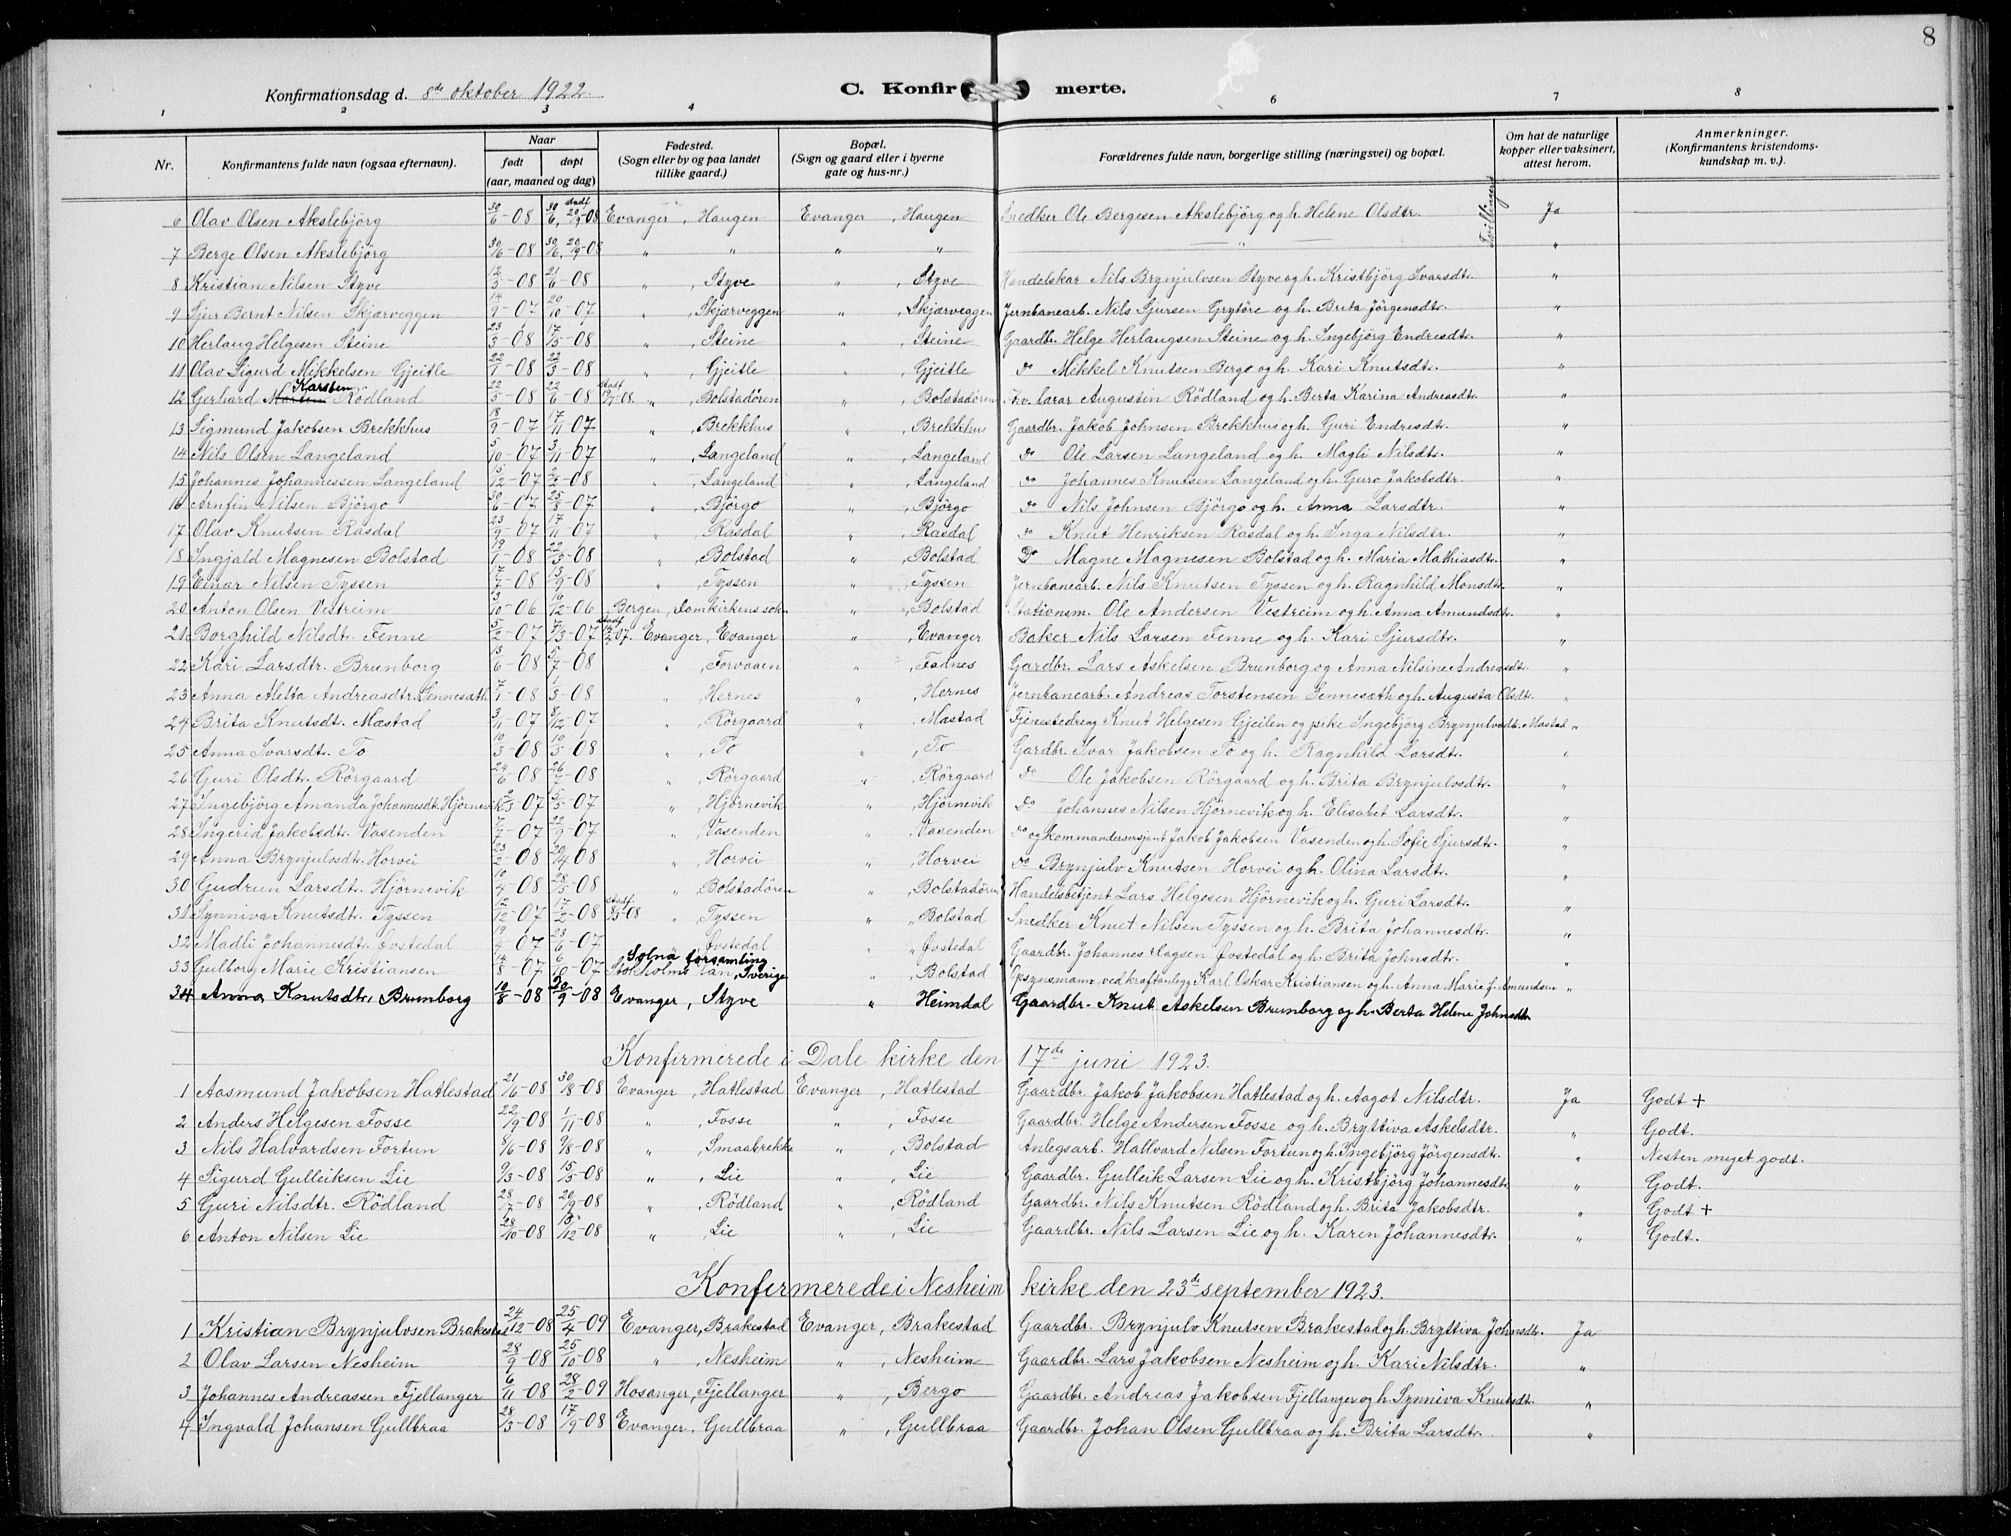 8
Konfirmationsdag d. 8de oktober 1922. C. Konfirmerte.
1 2 3 4 6 7 8
Nr. Konfirmantens fulde navn (ogsaa efternavn). Naar født døpt (aar, maaned og dag) Fødested. (Sogn eller by og paa landet tillike gaard.) Bopæl. (Sogn og gaard eller i byerne gate og hus-nr.) Forældrenes fulde navn, borgerlige stilling (næringsvei) og bopæl. Om hat de naturlige kopper eller vaksinert, attest herom. Anmerkninger. (Konfirmantens kristendoms-kundskap m. v.).
6 Olav Olsen Akslebjörg 30/6-08 30/6, stadf. 20/9-08 Evanger, Haugen Evanger, Haugen Snedker Ole Bergesen Akslebjörg og h. Helene Olsdtr. Tvillinger Ja
7 Berge Olsen Akslebjörg 30/6-08 30/6, 20/9-08 " " " " " "
8 Kristian Nilsen Styve 12/5-08 21/6-08 " , Styve " , Styve Handelskar Nils Brynjulvsen Styve og h. Kristbjörg Ivarsdtr. "
9 Sjur Bernt Nilsen Skjærveggen 14/9-07 20/10-07 " , Skjærveggen " , Skjærveggen Jernbanearb. Nils Sjursen Grytöre og h. Brita Jörgensdtr. "
10 Herlaug Helgesen Steine 23/3-08 17/5-08 " , Steine " , Steine Gaardbr. Helge Herlaugsen Steine og h. Ingebjörg Endresdtr. "
11 Olav Sigurd Mikkelsen Gjeitle 22/1-08 22/3-08 " , Gjeitle " , Gjeitle do Mikkel Knutsen Bergo og h. Kari Knutsdtr. "
12 Gerhard Karsten Rödland 22/5-08 22/6-08 stadf. " , Bolstadören " , Bolstadören Augustin Rödland og h. Berta Karina Andreasdtr. "
13 Sigmund Jakobsen Brekkhus 18/9-07 17/11-07 " , Brekkhus " , Brekkhus Gaardbr. Jakob Johnsen Brekkhus og h. Guri Endresdtr. "
14 Nils Olsen Langeland 5/10-07 3/11-07 " , Langeland " , Langeland do Ole Larsen Langeland og h. Magli Nilsdtr. "
15 Johannes Johannessen Langeland 15/12-07 2/2-08 " , Langeland " , Langeland do Johannes Knutsen Langeland og h. Guro Jakobsdtr. "
16 Arnfin Nilsen Björgo 30/6-07 25/8-07 " , Björgo " , Björgo do Nils Johnsen Björgo og h. Anna Larsdtr. "
17 Olav Knutsen Rasdal 23/9-07 17/11-07 " , Rasdal " , Rasdal do Knut Henriksen Rasdal og h. Inga Nilsdtr. "
18 Ingjald Magnesen Bolstad 19/1-08 22/3-08 " , Bolstad " , Bolstad Do Magne Magnesen Bolstad og h. Maria Mathiasdtr. "
19 Einar Nilsen Tyssen 17/7-08 13/9-08 " , Tyssen " , Tyssen Jernbanearb. Nils Knutsen Tyssen og h. Ragnhild Monsdtr. "
20 Anton Olsen Vestreim 13/10-06 16/12-06 Bergen, Domkirkens sokn " , Bolstad Stationsm. Ole Andersen Vestreim og h. Anna Amundsdtr. "
21 Borghild Nilsdtr. Fenne 5/2-07 7/3-07 stadf. Evanger, Evanger " , Evanger Baker Nils Larsen Fenne og h. Kari Sjursdtr. "
22 Kari Larsdtr. Brunborg 13/6-08 5/7-08 " , Forvaaen " , Fadnes Gardbr. Lars Askelsen Brunborg og Anna Nilsine Andreasdtr. "
23 Anna Aletta Andreasdtr. Jennesæth 7/1-08 1/3-08 " , Hernes " , Hernes Jernbanearb. Andreas Torstensen Jennesæth og h. Augusta Olsdtr. "
24 Brita Knutsdt. Mæstad 3/11-07 8/12-07 " , Rörgaard " , Mæstad Tjenestedreng Knut Helgesen Gjeilen og pike Ingebjörg Brynjulvsdt. Mæstad "
25 Anna Ivarsdtr. To 10/3-08 10/5-08 " , To " , To Gardbr. Ivar Jakobsen To og h. Ragnhild Larsdtr. "
26 Guri Olsdtr. Rörgaard 24/6-08 26/7-08 " , Rörgaard " , Rörgaard do Ole Jakobsen Rörgaard og h. Brita Brynjulvsdtr. "
27 Ingebjörg Amanda Johannesdt. Hjörnevik 2/3-07 5/5-07 " , Hjörnevik " , Hjörnevik do Johannes Nilsen Hjörnevik og h. Elisabet Larsdtr. "
28 Ingerid Jakobsdtr. Vasenden 7/7-07 22/9-07 " , Vasenden " , Vasenden do og kommandersersjant Jakob Jakobsen Vasenden og h. Sofie Sjursdtr. "
29 Anna Brynjulvsdtr. Horvei 23/2-08 20/4-08 " , Horvei " , Horvei do Brynjulv Knutsen Horvei og h. Olina Larsdtr. "
30 Gudrun Larsdtr. Hjörnevik 10/4-08 28/5-08 " , Bolstadören " , Bolstadören Handelsbetjent Lars Helgesen Hjörnevik og h. Guri Larsdtr. "
31 Synniva Knutsdtr. Tyssen 12/12-07 17/2-08 stadf. " , Tyssen " , Bolstad Snedker Knut Nilsen Tyssen og h. Brita Johannesdtr. "
32 Madli Johannesdtr. Övstedal 19/4-07 23/6-07 " , Övstedal " , Övstedal Gaardbr. Johannes Aagsen Övstedal og h. Brita Johnsdtr. "
33 Gulborg Marie Kristiansen 14/8-07 6/10-07 Solna församling Stokholms län, Sverige " , Bolstad Opsynsmann ved kraftanlegg Karl Oskar Kristiansen og h. Anna Marie f. Amundsen "
34 Anna Knutsdtr. Brunborg 10/8-08 20/9-08 Evanger, Styve " Heimdal Gaardbr. Knut Askelsen Brunborg og h. Berta Helene Johnsdtr.
Konfirmerede i Dale kirke den 17de juni 1923.
1 Aasmund Jakobsen Hatlestad 21/6-08 30/8-08 Evanger, Hatlestad Evanger, Hatlestad Gaardbr. Jakob Jakobsen Hatlestad og h. Aagot Nilsdtr. Ja Godt +
2 Anders Helgesen Fosse 22/9-08 1/11-08 " , Fosse " , Fosse Gaardbr. Helge Andersen Fosse og h. Bryttiva Askelsdtr. " Godt.
3 Nils Halvardsen Fortun 8/6-08 9/8-08 " , Smaabrekke " , Bolstad Anlegsarb. Hallvard Nilsen Fortun og h. Ingebjörg Jörgensdtr. " Nesten meget godt.
4 Sigurd Gulleiksen Lie 9/3-08 15/5-08 " , Lie " , Lie Gaardbr. Gulleik Larsen Lie og h. Kristbjörg Johannesdtr. " Godt.
5 Guri Nilsdtr. Rödland 28/7-08 20/9-08 " , Rödland " , Rödland Gaardbr. Nils Knutsen Rödland og h. Brita Jakobsdtr. " Godt +
6 Anton Nilsen Lie 28/10-08 13/12-08 " , Lie " , Lie Gaardbr. Nils Larsen Lie og h. Karen Johannesdtr. " Godt.
Konfermerede i Nesheim kirke den 23de september 1923.
1 Kristian Brynjulvsen Brakestad 24/12-08 25/4-09 Evanger, Brakestad Evanger, Brakestad Gaardbr. Brynjulv Knutsen Brakestad og h. Bryttiva Johnsdtr. Ja
2 Olav Larsen Nesheim 28/9-08 25/10-08 " , Nesheim " , Nesheim Gaardbr. Lars Jakobsen Nesheim og h. Kari Nilsdtr. "
3 Johannes Andreassen Fjellanger 6/11-08 28/2-09 Hosanger, Fjellanger " , Bergo Gaardbr. Andreas Jakobsen Fjellanger og h. Synniva Knutsdtr. "
4 Ingvald Johansen Gullbraa 28/3-08 17/9-08 Evanger, Gullbraa " , Gullbraa Gaardbr. Johan Olsen Gullbraa og h. Brita Larsdtr. "